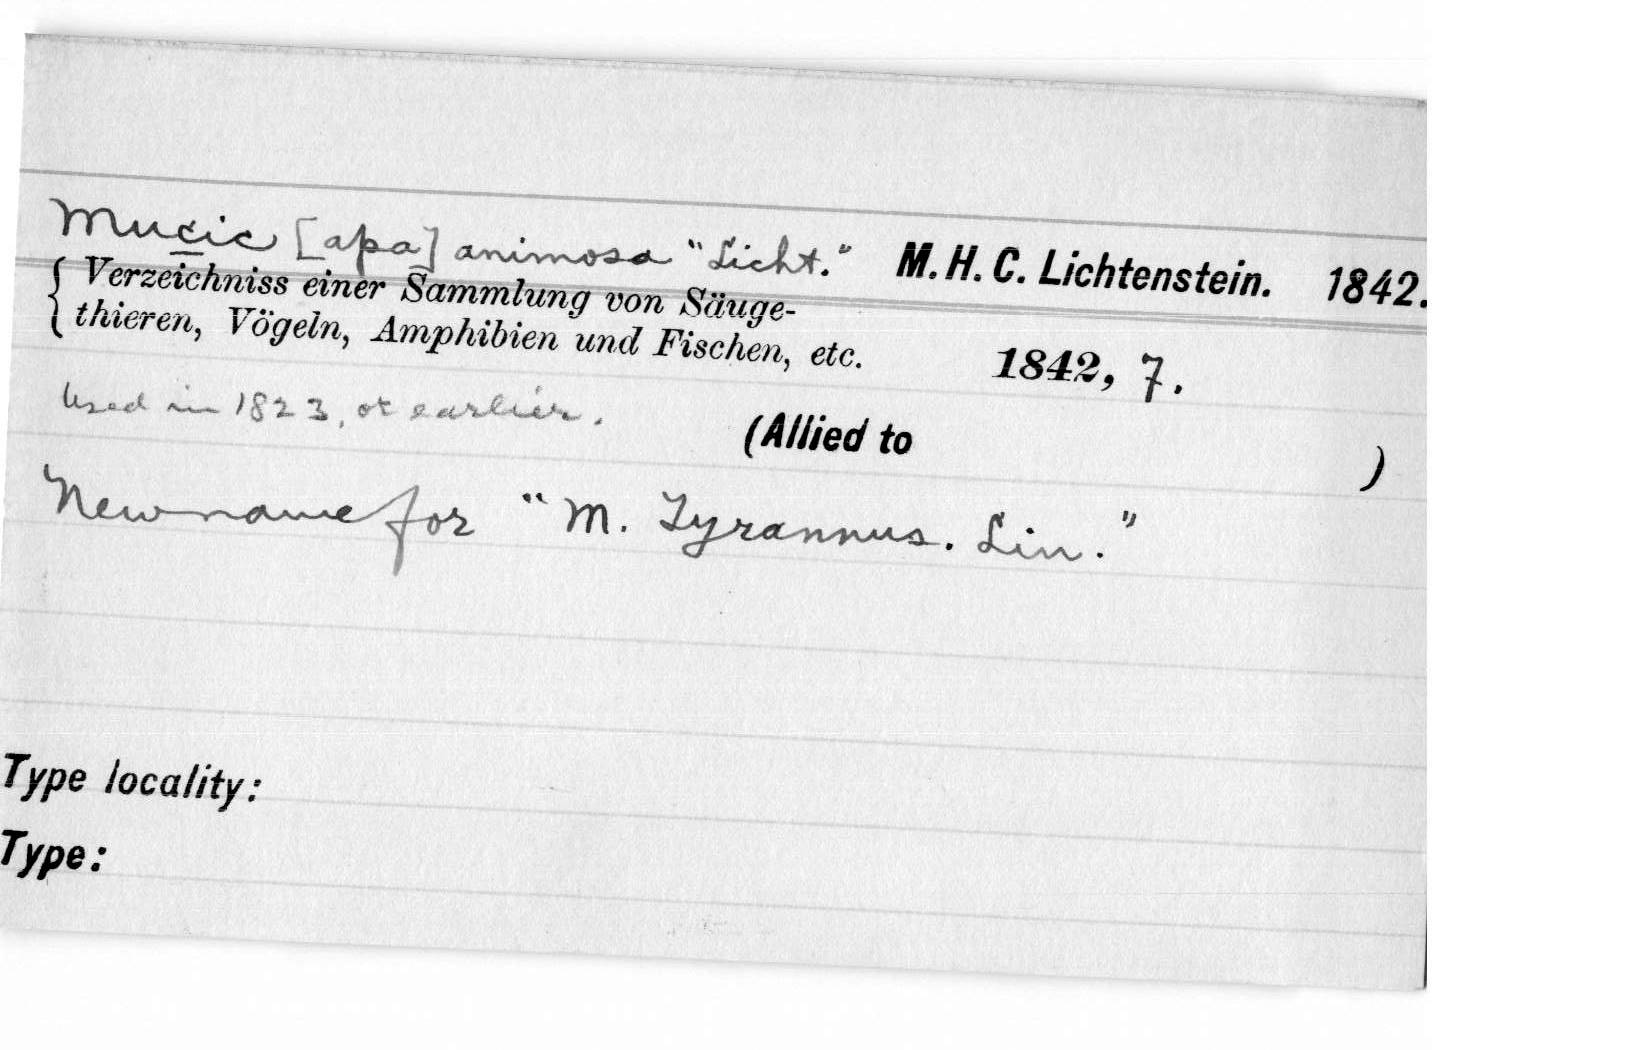 Mucic [apa] animosa "Licht." M. H. C. Lichtenstein. 1842.
{ Verzeichniss einer Sammlung von Säuge-
thieren, Vögeln, Amphibien und Fischen, etc. 1842, 7.
Used in 1823, or earlier.
(Allied to )
New name for "M. Tyrannus. Lin."
Type locality:
Type: